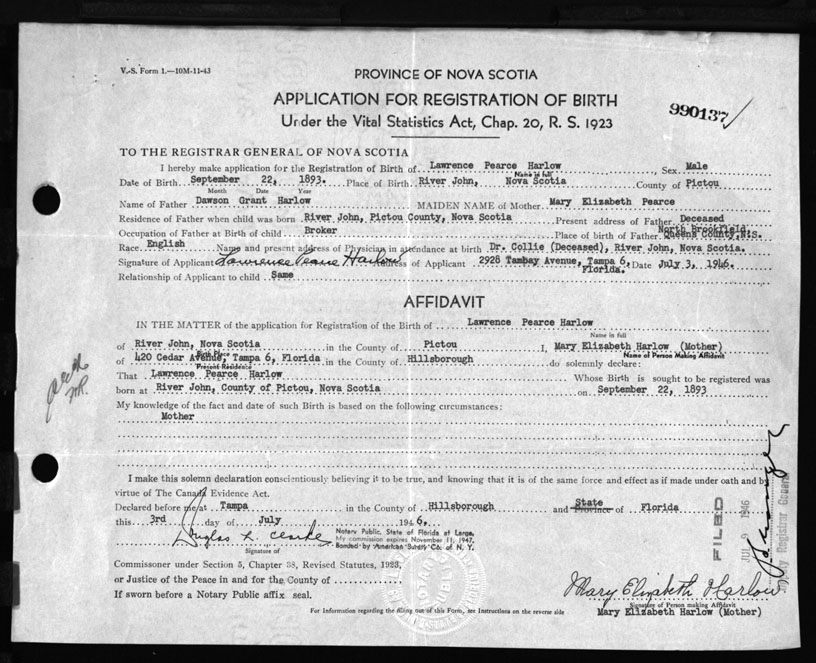 V.-S. Form 1.—10M-11-43
PROVINCE OF NOVA SCOTIA
APPLICATION FOR REGISTRATION OF BIRTH
Under the Vital Statistics Act, Chap. 20, R. S. 1923
990137
TO THE REGISTRAR GENERAL OF NOVA SCOTIA
I hereby make application for the Registration of Birth of Lawrence Pearce Harlow, Sex Male
Name in full
Date of Birth September 22, 1893. Place of Birth River John, Nova Scotia County of Pictou
Month Date Year
Name of Father Dawson Grant Harlow MAIDEN NAME of Mother Mary Elizabeth Pearce
Residence of Father when child was born River John, Pictou County, Nova Scotia Present address of Father Deceased
Occupation of Father at Birth of child Broker Place of birth of Father North Brookfield, Queens County, N.S.
Race English Name and present address of Physician in attendance at birth Dr. Collie (Deceased), River John, Nova Scotia.
Signature of Applicant Lawrence Pearce Harlow Address of Applicant 2928 Tambay Avenue, Tampa 6, Florida. Date July 3, 1946.
Relationship of Applicant to child Same
AFFIDAVIT
IN THE MATTER of the application for Registration of the Birth of Lawrence Pearce Harlow
Name in full
of River John, Nova Scotia in the County of Pictou I, Mary Elizabeth Harlow (Mother)
Birth Place Name of Person Making Affidavit
of 420 Cedar Avenue, Tampa 6, Florida in the County of Hillsborough do solemnly declare:
Present Residence
That Lawrence Pearce Harlow Whose Birth is sought to be registered was
born at River John, County of Pictou, Nova Scotia on September 22, 1893
My knowledge of the fact and date of such Birth is based on the following circumstances:
Mother
I make this solemn declaration conscientiously believing it to be true, and knowing that it is of the same force and effect as if made under oath and by
virtue of The Canada Evidence Act.
Declared before me at Tampa in the County of Hillsborough and State Province of Florida
this 3rd day of July 1946.
Douglas L. Clarke
Signature of
Notary Public, State of Florida at Large,
My commission expires November 11, 1947,
Bonded by American Surety Co. of N. Y.
Commissioner under Section 5, Chapter 38, Revised Statutes, 1923,
or Justice of the Peace in and for the County of
If sworn before a Notary Public affix seal.
FILED
JUL 9 1946
Deputy Registrar General
Mary Elizabeth Harlow
Signature of Person making Affidavit
Mary Elizabeth Harlow (Mother)
For Information regarding the filling out of this Form, see Instructions on the reverse side